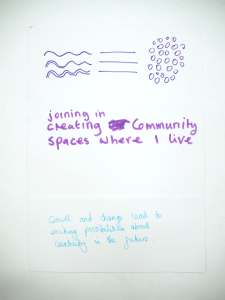 joining in
creating Community
spaces where I live
Growth and change lead to
exciting possibilities about
creativity in the future